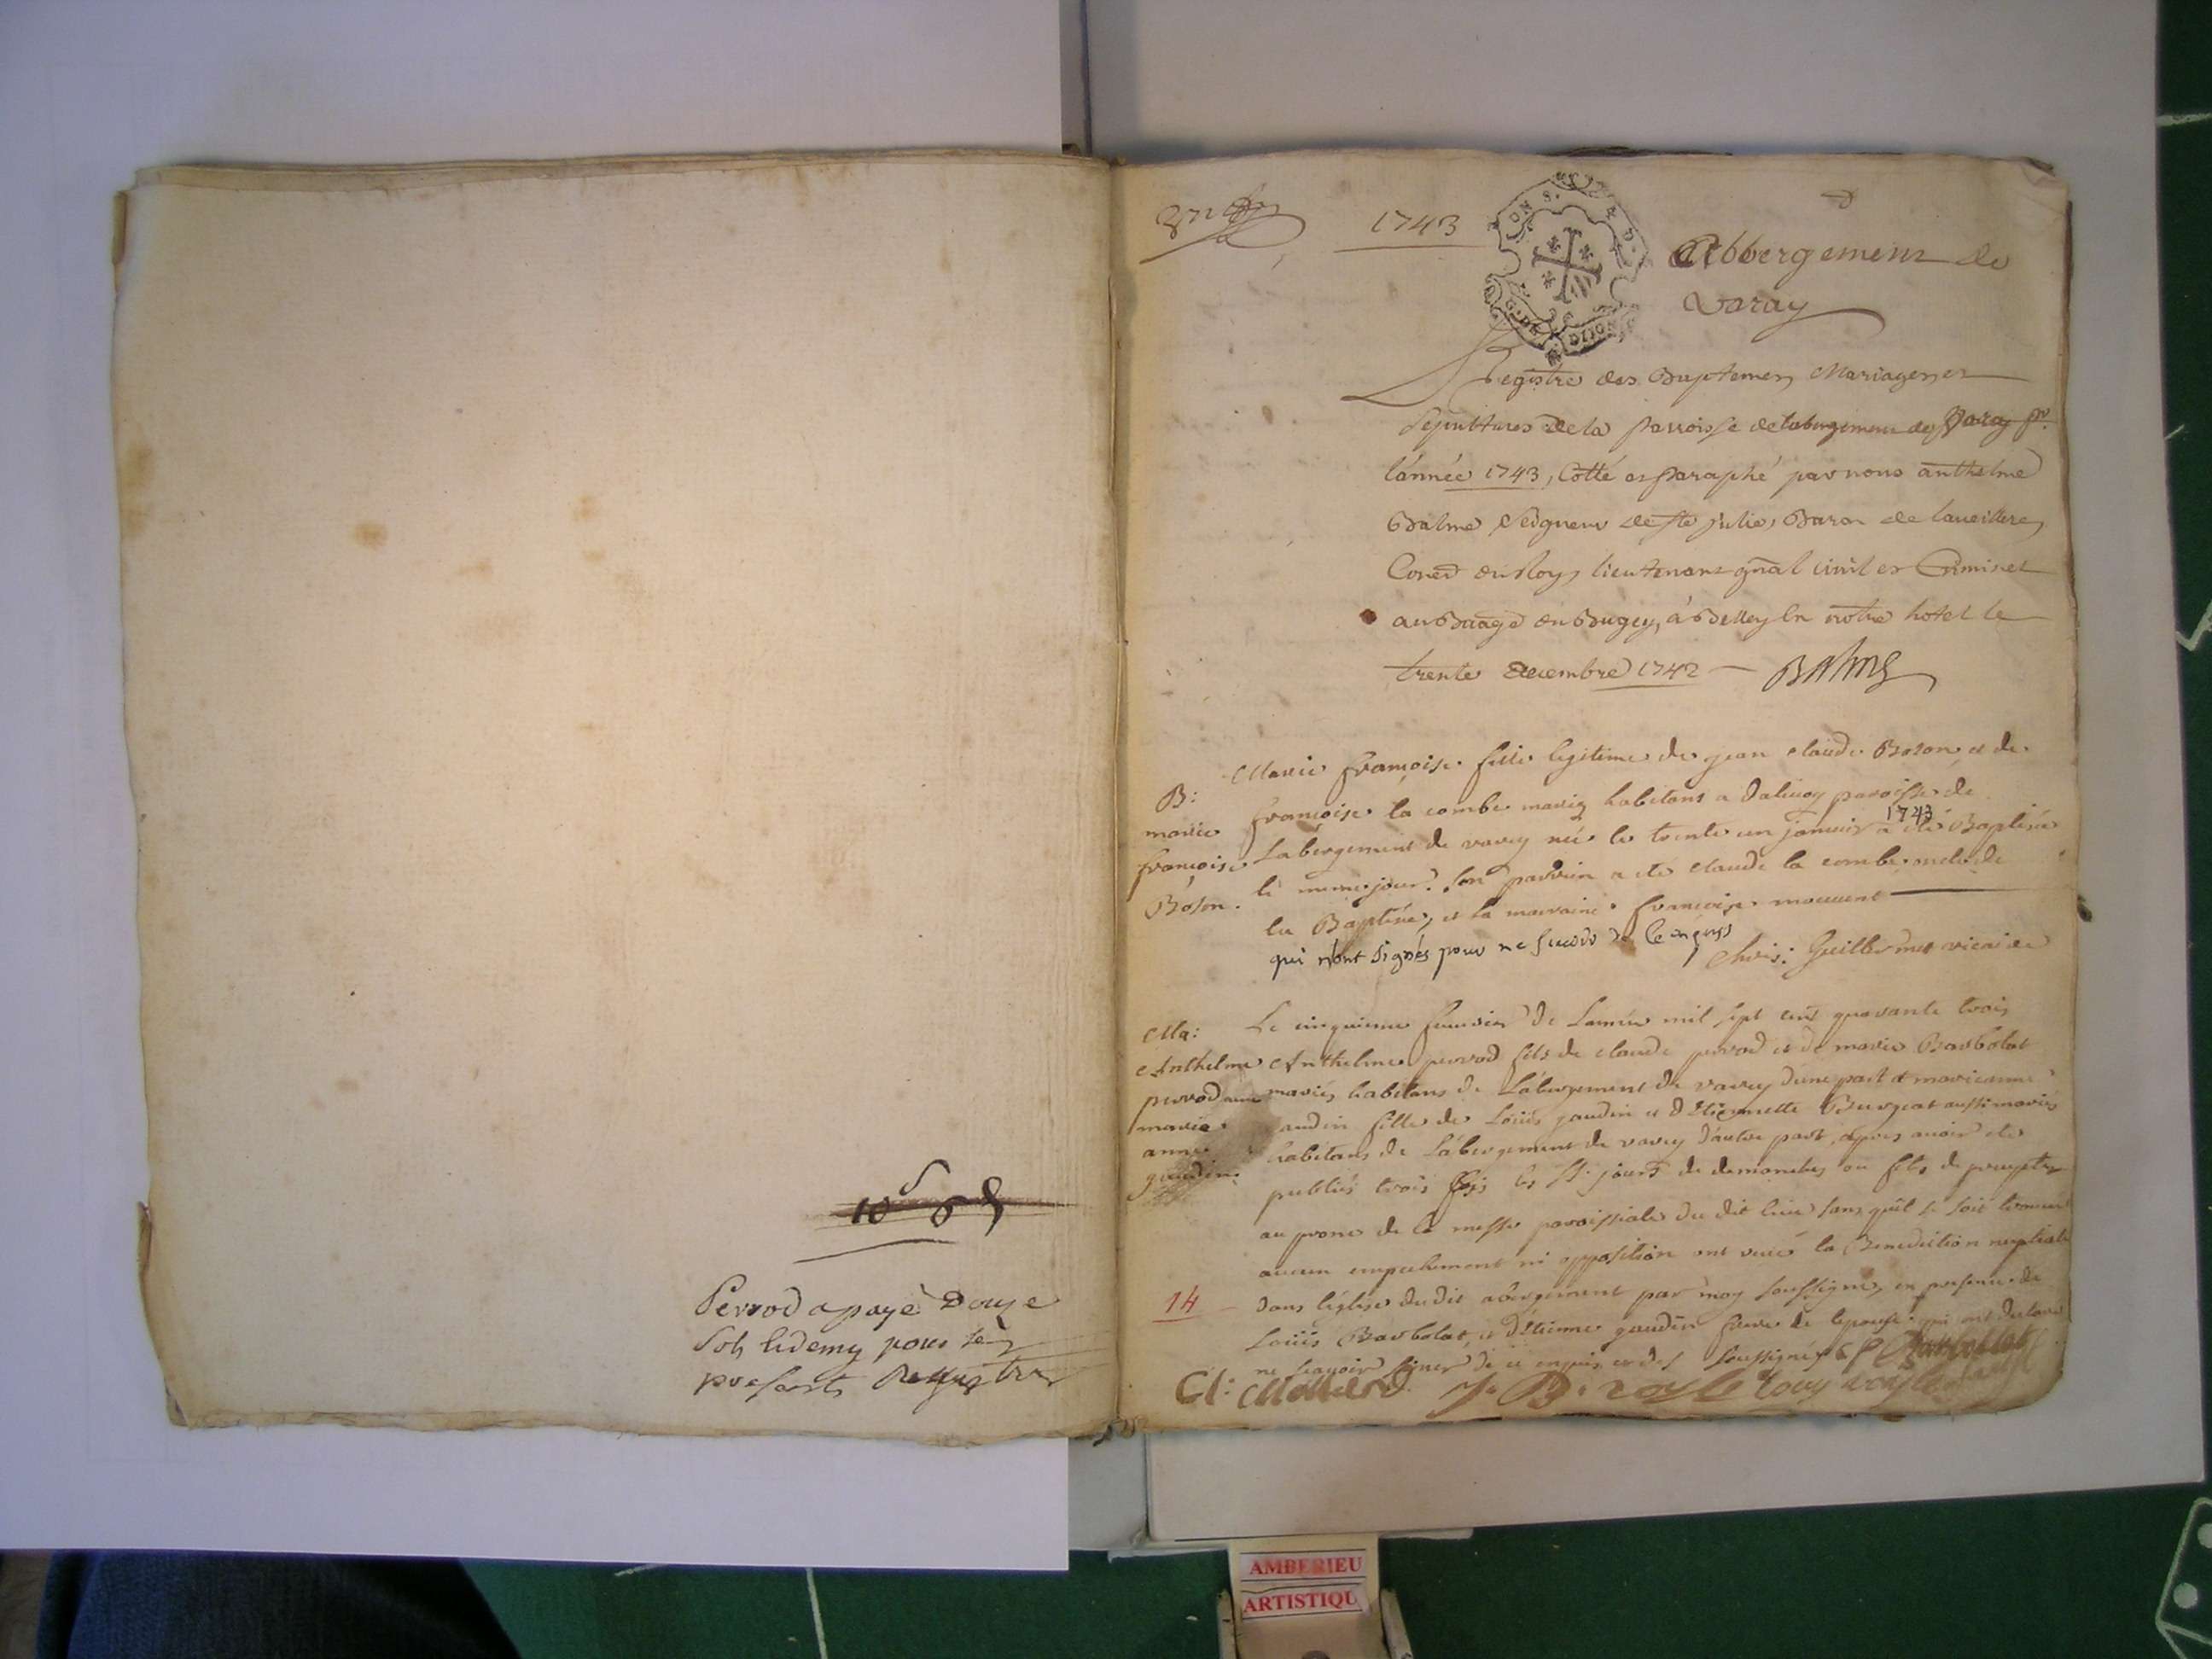 10 s 6 d
Perrod a payé Douze
sols & demy pour les
presents Registres
1743
Abbergement de
Varay
GN. DE DIJON
Registre des Baptemes, Mariages et
Sepultures de la parroisse de labergement de Varay pr.
l'année 1743, Cotté et paraphé par nous anthelme
Balme Seigneur de ste julie, Baron de
Coner du Roy, lieutenant gñal civil et Criminel
au Baage du Bugey, à Belley En notre hotel le
trente decembre 1742 Balme
Marie françoise fille legitime de jean claude Boson et de
B: françoise la combe mariez habitans a dalivoy paroisse de
1743
marie Labergement de varey née le trente un janvier a été Baptisée
françoise le meme jour. son parrein a été claude la combe oncle de
Boson. la Baptisée, et la marraine françoise mouuent
qui n'ont signés pour ne scavoir de ce enquis
Guillermet vicaire
Ma: Le cinquieme fevrier de Lannée mil sept cens quarante trois
Anthelme Anthelme perrod fils de claude perrod et de marie Barbolat
perrod avec mariés habitans de Labergement de varey dune part et marieanne
marie audin fille de Loüis gaudin et d'Etiennette Bergeat aussi mariés
anne habitans de Labergement de varey d'autre part, apres avoir eté
gaudin publiés trois fois les jours de dimanches ou fetes de preceptes
au prone de la messe paroissiale du dit lieu sans qu'il se soit trouvé
aucun empechement ni opposition ont receu la Benediction nuptiale
14 dans l'église du dit abergement par moy soussigné, en presence de
Loüis Barbolat, et d'Etienne gaudin frere de l'epouse qui ont declaré
ne scavoir signer de ce enquis et des soussignés
Cl: